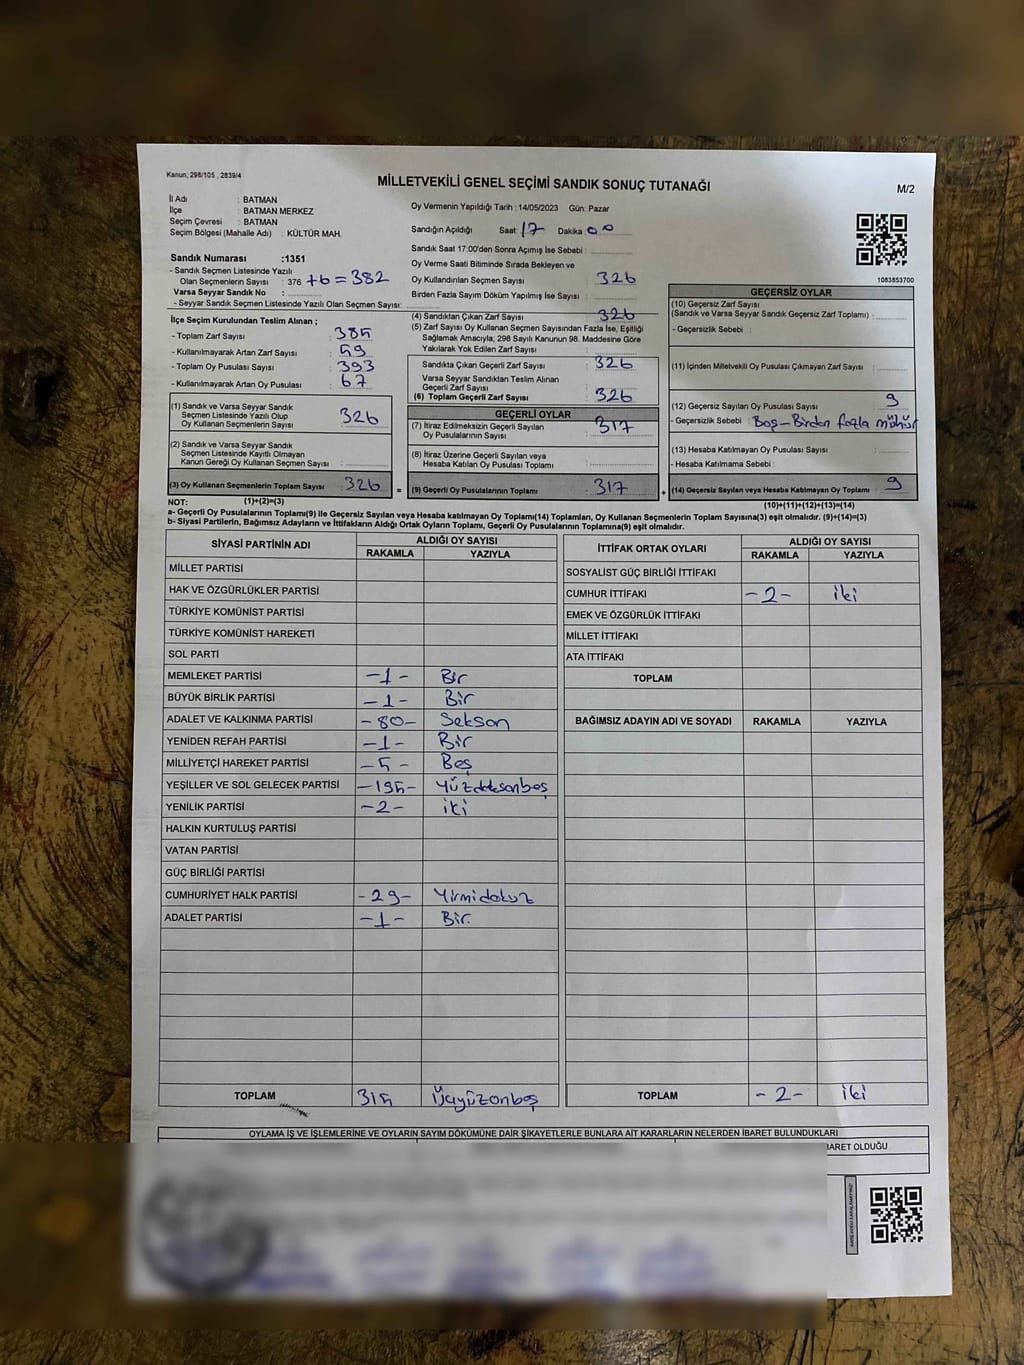 Kanun; 298/105 , 2839/4
MİLLETVEKİLİ GENEL SEÇİMİ SANDIK SONUÇ TUTANAĞI
M/2
İl Adı : BATMAN
İlçe : BATMAN MERKEZ
Seçim Çevresi : BATMAN
Seçim Bölgesi (Mahalle Adı) : KÜLTÜR MAH.
Sandık Numarası :1351
- Sandık Seçmen Listesinde Yazılı
Olan Seçmenlerin Sayısı : 376 +6=382
Varsa Seyyar Sandık No :
- Seyyar Sandık Seçmen Listesinde Yazılı Olan Seçmen Sayısı:
İlçe Seçim Kurulundan Teslim Alınan ;
- Toplam Zarf Sayısı : 385
- Kullanılmayarak Artan Zarf Sayısı : 59
- Toplam Oy Pusulası Sayısı : 393
- Kullanılmayarak Artan Oy Pusulası : 67
(1) Sandık ve Varsa Seyyar Sandık
Seçmen Listesinde Yazılı Olup
Oy Kullanan Seçmenlerin Sayısı : 326
(2) Sandık ve Varsa Seyyar Sandık
Seçmen Listesinde Kayıtlı Olmayan
Kanun Gereği Oy Kullanan Seçmen Sayısı :
(3) Oy Kullanan Seçmenlerin Toplam Sayısı : 326 =
Oy Vermenin Yapıldığı Tarih : 14/05/2023 Gün: Pazar
Sandığın Açıldığı Saat: 17 Dakika: 00
Sandık Saat 17:00'den Sonra Açımış İse Sebebi :
Oy Verme Saati Bitiminde Sırada Bekleyen ve
Oy Kullandırılan Seçmen Sayısı : 326
Birden Fazla Sayım Döküm Yapılmış İse Sayısı :
(4) Sandıktan Çıkan Zarf Sayısı : 326
(5) Zarf Sayısı Oy Kullanan Seçmen Sayısından Fazla İse, Eşitliği
Sağlamak Amacıyla, 298 Sayılı Kanunun 98. Maddesine Göre
Yakılarak Yok Edilen Zarf Sayısı :
Sandıkta Çıkan Geçerli Zarf Sayısı : 326
Varsa Seyyar Sandıktan Teslim Alınan
Geçerli Zarf Sayısı :
(6) Toplam Geçerli Zarf Sayısı : 326
GEÇERLİ OYLAR
(7) İtiraz Edilmeksizin Geçerli Sayılan
Oy Pusulalarının Sayısı : 317
(8) İtiraz Üzerine Geçerli Sayılan veya
Hesaba Katılan Oy Pusulası Toplamı :
(9) Geçerli Oy Pusulalarının Toplamı : 317 +
1083853700
GEÇERSİZ OYLAR
(10) Geçersiz Zarf Sayısı
(Sandık ve Varsa Seyyar Sandık Geçersiz Zarf Toplamı) :
- Geçersizlik Sebebi :
(11) İçinden Milletvekili Oy Pusulası Çıkmayan Zarf Sayısı :
(12) Geçersiz Sayılan Oy Pusulası Sayısı : 9
- Geçersizlik Sebebi : Boş-Birden fazla mühür
(13) Hesaba Katılmayan Oy Pusulası Sayısı :
- Hesaba Katılmama Sebebi :
(14) Geçersiz Sayılan veya Hesaba Katılmayan Oy Toplamı : 9
NOT: (1)+(2)=(3) (10)+(11)+(12)+(13)=(14)
a- Geçerli Oy Pusulalarının Toplamı(9) ile Geçersiz Sayılan veya Hesaba Katılmayan Oy Toplamı(14) Toplamları, Oy Kullanan Seçmenlerin Toplam Sayısına(3) eşit olmalıdır. (9)+(14)=(3)
b- Siyasi Partilerin, Bağımsız Adayların ve İttifakların Aldığı Ortak Oyların Toplamı, Geçerli Oy Pusulalarının Toplamına(9) eşit olmalıdır.
SİYASİ PARTİNİN ADI ALDIĞI OY SAYISI
RAKAMLA YAZIYLA
MİLLET PARTİSİ
HAK VE ÖZGÜRLÜKLER PARTİSİ
TÜRKİYE KOMÜNİST PARTİSİ
TÜRKİYE KOMÜNİST HAREKETİ
SOL PARTİ
MEMLEKET PARTİSİ -1- Bir
BÜYÜK BİRLİK PARTİSİ -1- Bir
ADALET VE KALKINMA PARTİSİ -80- Seksan
YENİDEN REFAH PARTİSİ -1- Bir
MİLLİYETÇİ HAREKET PARTİSİ -5- Beş
YEŞİLLER VE SOL GELECEK PARTİSİ -195-
YENİLİK PARTİSİ -2- iki
HALKIN KURTULUŞ PARTİSİ
VATAN PARTİSİ
GÜÇ BİRLİĞİ PARTİSİ
CUMHURİYET HALK PARTİSİ -29- Yirmidokuz
ADALET PARTİSİ -1- Bir.
TOPLAM 315 Üçyüzonbeş
İTTİFAK ORTAK OYLARI ALDIĞI OY SAYISI
RAKAMLA YAZIYLA
SOSYALİST GÜÇ BİRLİĞİ İTTİFAKI
CUMHUR İTTİFAKI -2- iki
EMEK VE ÖZGÜRLÜK İTTİFAKI
MİLLET İTTİFAKI
ATA İTTİFAKI
TOPLAM
BAĞIMSIZ ADAYIN ADI VE SOYADI RAKAMLA YAZIYLA
TOPLAM -2- iki
OYLAMA İŞ VE İŞLEMLERİNE VE OYLARIN SAYIM DÖKÜMÜNE DAİR ŞİKAYETLERLE BUNLARA AİT KARARLARIN NELERDEN İBARET BULUNDUKLARI
BARET OLDUĞU